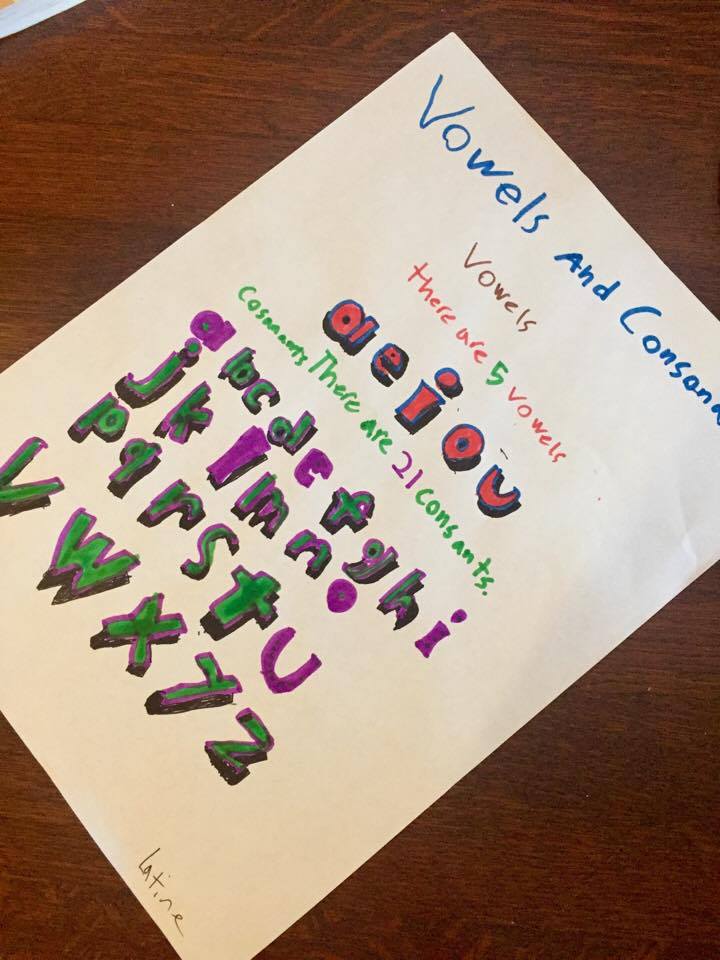 Vowels And Consona
Vowels
there are 5 vowels
a e i o u
Cosnants There are 21 Consants.
a b c d e f g h i
j k l m n o
p q r s t u
v w x y z
Latine